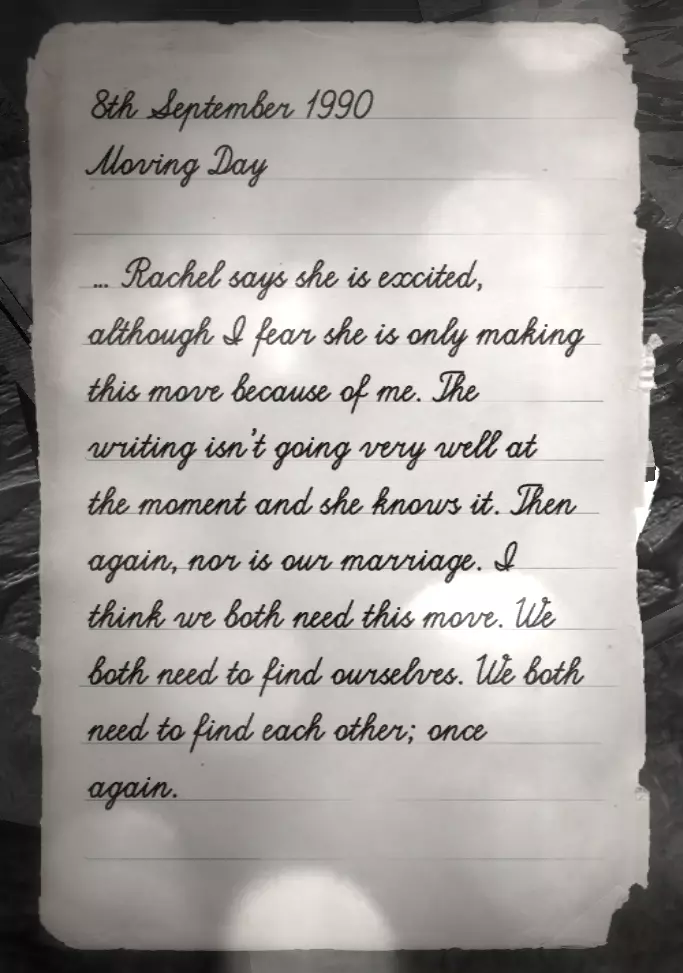 8th September 1990
Moving Day
... Rachel says she is excited,
although I fear she is only making
this move because of me. The
writing isn't going very well at
the moment and she knows it. Then
again, nor is our marriage. I
think we both need this move. We
both need to find ourselves. We both
need to find each other; once
again.